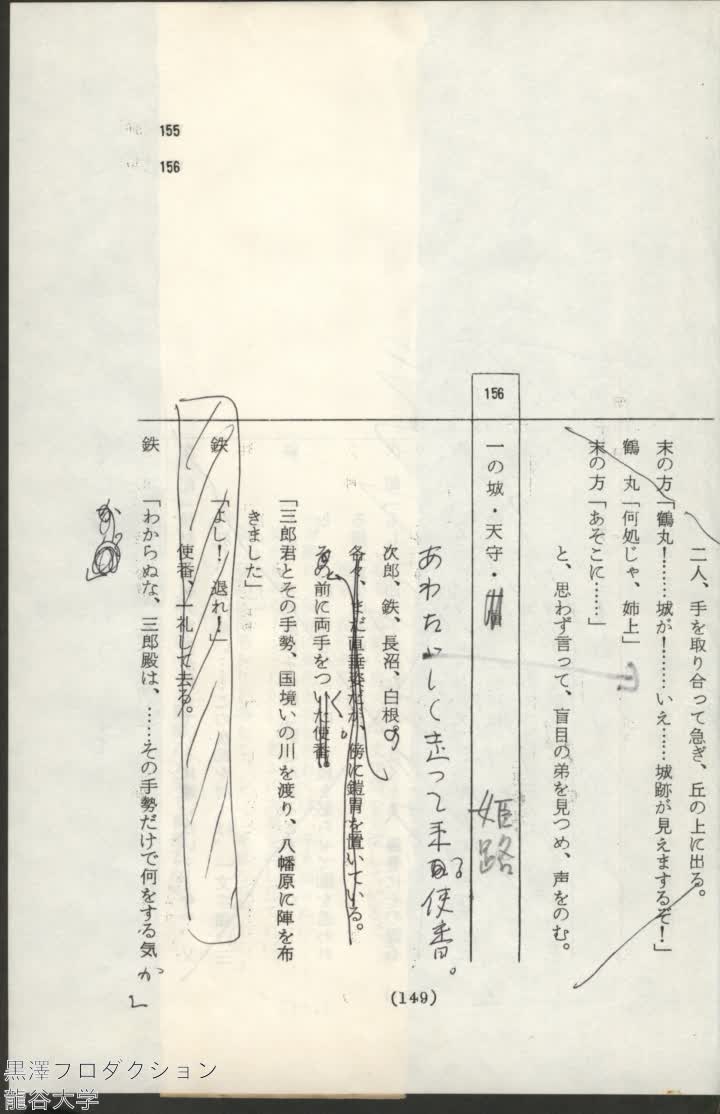 155
156
二人、手を取り合って急ぎ、丘の上に出る。
末の方「鶴丸！……城が！……いえ……城跡が見えまするぞ！」
鶴　丸「何処じゃ、姉上」
末の方「あそこに……」
と、思わず言って、盲目の弟を見つめ、声をのむ。
156
一の城・天守・
姫路
あわただしく走って来る使番。
次郎、鉄、長沼、白根。
各々、まだ直垂姿だが、傍に鎧冑を置いている。
その前に両手をついた使番。
「三郎君とその手勢、国境いの川を渡り、八幡原に陣を布
きました」
鉄　「よし！　退れ！」
使番、一礼して去る。
鉄　「わからぬな、三郎殿は、……その手勢だけで何をする気
か」
(149)
黒澤プロダクション
龍谷大学